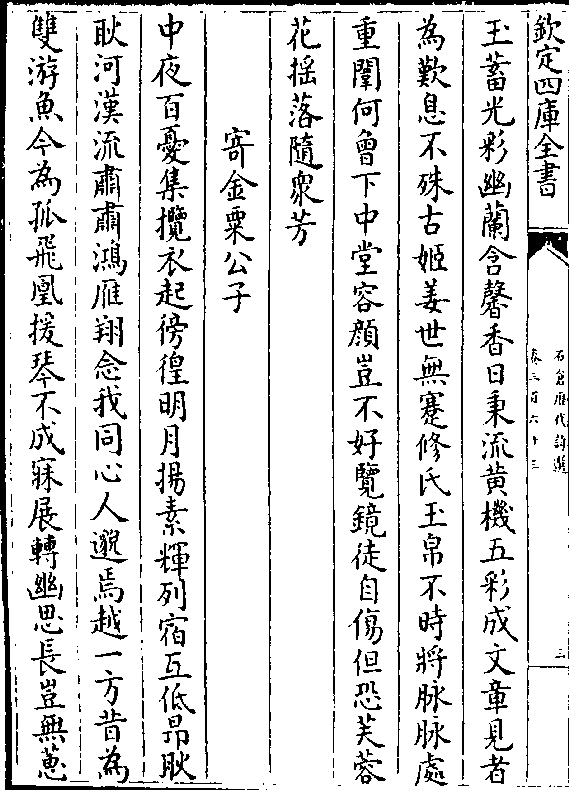 欽定四庫全書
石倉歷代詩選
卷三百六十三
三
玉蓄光彩幽蘭含馨香日秉流黄機五彩成文章見者
為歎息不殊古姬姜世無蹇修氏玉帛不時將脉脉處
重闈何曾下中堂容顔豈不好覽鏡徒自傷但恐芙蓉
花揺落隨衆芳
寄金粟公子
中夜百憂集攬衣起徬徨明月揚素輝列宿互低昂耿
耿河漢流肅肅鴻雁翔念我同心人邈焉越一方昔為
雙游魚今為孤飛凰援琴不成寐展轉幽思長豈無蔥